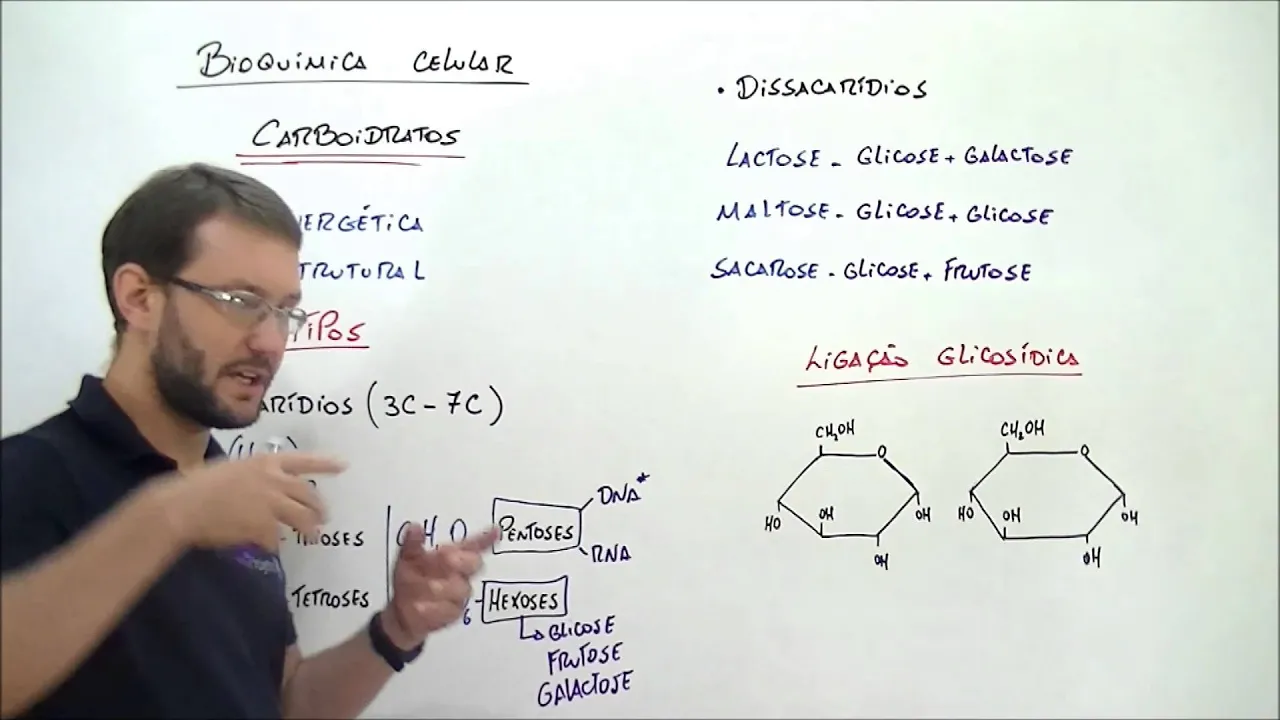 BIOQUÍMICA CELULAR
CARBOIDRATOS
ERGÉTICA
TRUTURAL
TIPOS
ARÍDIOS (3C - 7C)
TRIOSES
TETROSES
PENTOSES
DNA*
RNA
6 - HEXOSES
GLICOSE
FRUTOSE
GALACTOSE
• DISSACARÍDIOS
LACTOSE - GLICOSE + GALACTOSE
MALTOSE - GLICOSE + GLICOSE
SACAROSE - GLICOSE + FRUTOSE
LIGAÇÃO GLICOSÍDICA
CH₂OH O HO OH OH OH
CH₂OH O HO OH OH OH